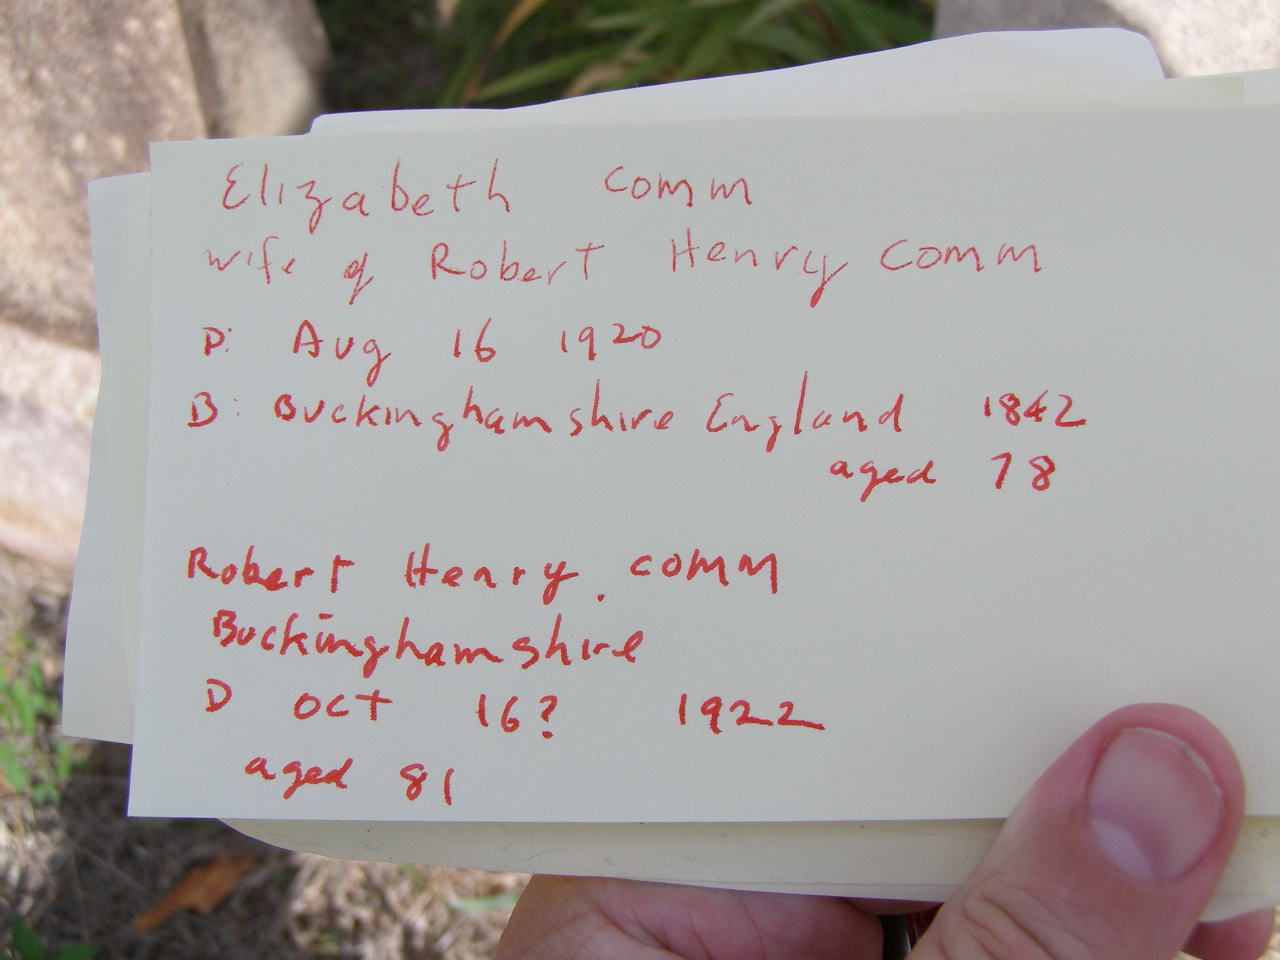 Elizabeth Comm
wife of Robert Henry Comm
D: Aug 16 1920
B: Buckinghamshire England 1842
aged 78
Robert Henry. Comm
Buckinghamshire
D Oct 16? 1922
aged 81